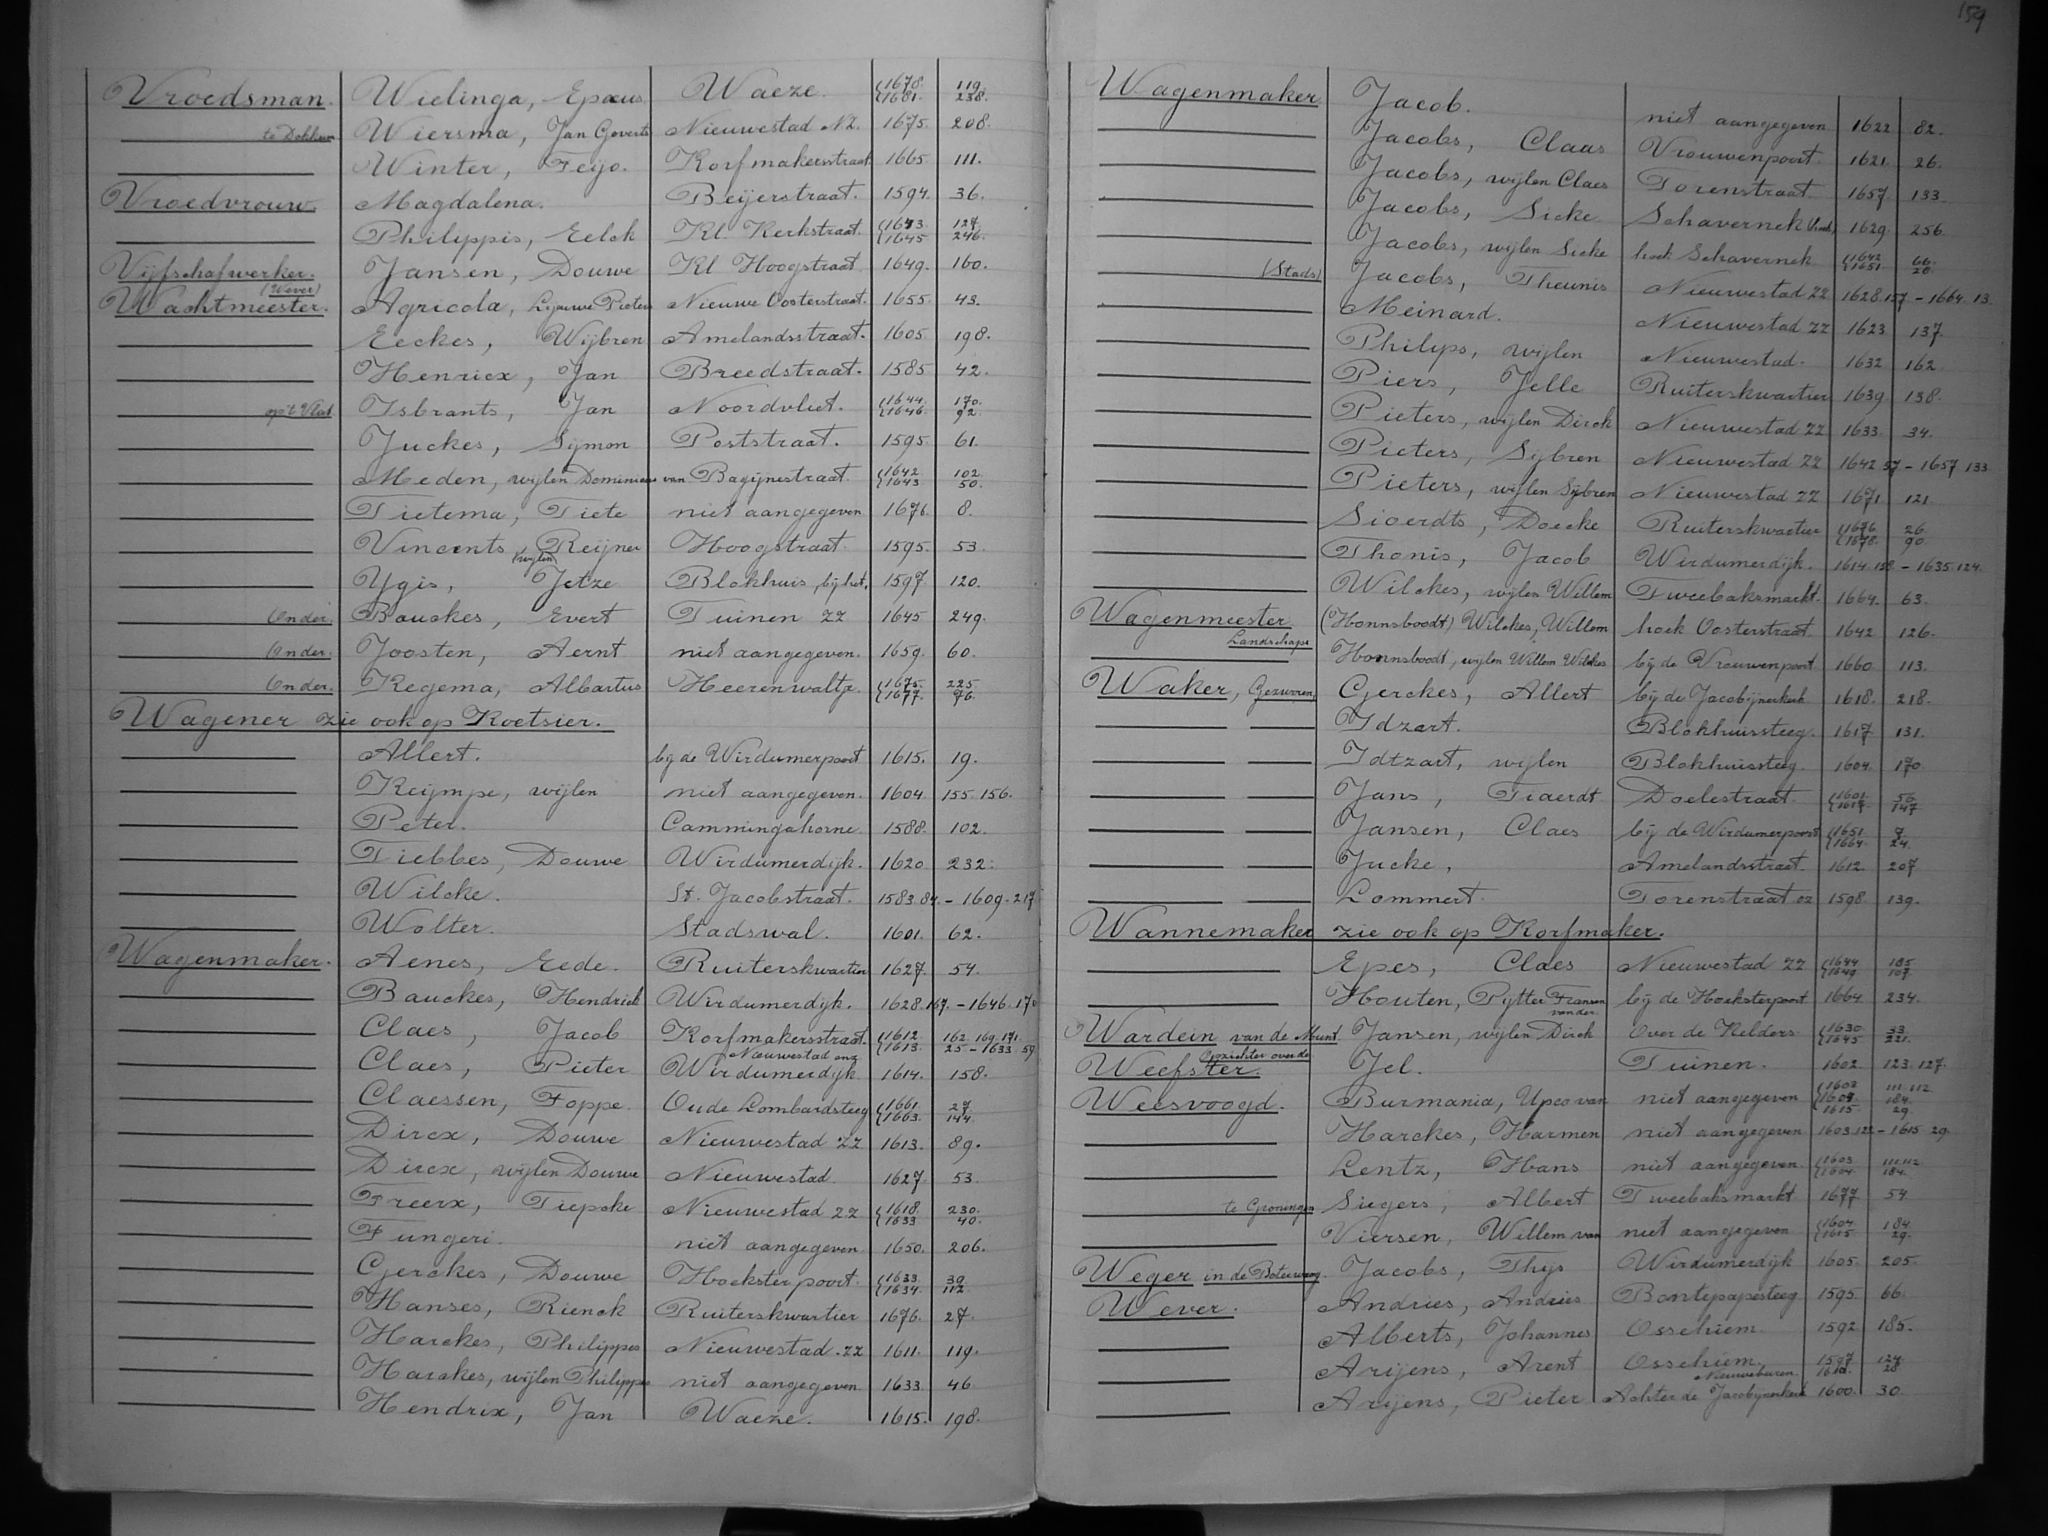 159
Vroedsman. Wielinga, Epaeus Waeze. {1678. 119.
{1681. 238.
te Dokkum Wiersma, Jan Goverts Nieuwestad NZ. 1675. 208.
Winter, Feijo. Korfmakersstraat 1665. 111.
Vroedvrouw. Magdalena. Beijerstraat. 1594. 36.
Philippis, Eelck Kl. Kerkstraat. {1643. 127.
{1645 246.
Vijfschafwerker. Jansen, Douwe Kl Hoogstraat 1649. 160.
(Wever)
Wachtmeester. Agricola, Lijuwe Pieters Nieuwe Oosterstraat. 1655. 43.
Eeckes, Wijbren Amelandsstraat. 1605. 198.
Henricx, Jan Breedstraat. 1585 42.
op't Vliet Isbrants, Jan Noordvliet. {1644. 170.
{1646. 92.
Juckes, Sijmon Poststraat. 1595. 61.
Meden, wijlen Dominicus van Bagijnestraat. {1642 102.
{1643 50.
Tietema, Tiete niet aangegeven 1676. 8.
Vincents, Reijner Hoogstraat. 1595. 53.
Ygis, (wijlen) Jetze Blokhuis, bij het, 1597. 120.
Onder. Bauckes, Evert Tuinen ZZ 1645 249.
Onder. Joosten, Aernt niet aangegeven. 1659. 60.
Onder. Regema, Albartus Heerenwaltje. {1675. 225.
{1677. 76.
Wagener zie ook op Koetsier.
Allert. bij de Wirdumerpoort 1615. 19.
Keijmpe, wijlen niet aangegeven. 1604. 155. 156.
Peter. Cammingahorne. 1588. 102.
Tiebbes, Douwe Wirdumerdijk. 1620. 232.
Wilcke. St. Jacobstraat. 1583. 84. - 1609. 217
Wolter. Stadswal. 1601. 62.
Wagenmaker. Aenes, Eede. Ruiterskwartier 1627. 54.
Bauckes, Hendrick Wirdumerdijk. 1628. 167. - 1646. 170
Claes, Jacob Korfmakersstraat. {1612. 162. 169. 171.
{1613. 25 - 1633. 59
Nieuwestad enz
Claes, Pieter Wirdumerdijk 1614. 158.
Claessen, Foppe. Oude Lombardsteeg {1661. 27.
{1663. 144.
Dircx, Douwe Nieuwestad ZZ 1613. 89.
Dircx, wijlen Douwe Nieuwestad. 1627 53.
Freerx, Tiepcke Nieuwestad ZZ {1618. 230.
{1633 40.
Fungeri. niet aangegeven 1650. 206.
Gerckes, Douwe Hoeksterpoort. {1633. 39.
{1634. 112.
Hanses, Rienck Ruiterskwartier 1676. 27.
Harckes, Philippus Nieuwestad. ZZ 1611. 119.
Harckes, wijlen Philippus niet aangegeven 1633. 46.
Hendrix, Jan Waeze. 1615. 198.
Wagenmaker Jacob. niet aangegeven 1622 82.
Jacobs, Claas Vrouwenpoort. 1621. 26.
Jacobs, wijlen Claes Torenstraat. 1657. 133.
Jacobs, Sicke Schavernek 1629. 256.
Jacobs, wijlen Sicke hoek Schavernek {1642 66.
{1651. 28.
(Stads) Jacobs, Theunis Nieuwestad ZZ 1628. 157 - 1664. 13.
Meinard. Nieuwestad ZZ 1623. 137.
Philips, wijlen Nieuwestad. 1632 162.
Piers, Jelle Ruiterskwartier 1639 138.
Pieters, wijlen Dirck Nieuwestad ZZ 1633. 34.
Pieters, Sijbren Nieuwestad ZZ 1642 37 - 1657. 133
Pieters, wijlen Sijbren Nieuwestad ZZ 1671. 121.
Sioerdts, Doecke Ruiterskwartier {1676. 26.
{1678. 90.
Thonis, Jacob Wirdumerdijk. 1614. 128. - 1635. 124.
Wilckes, wijlen Willem Tweebaksmarkt. 1664. 63.
Wagenmeester. (Honnsboodt) Wilckes, Willem hoek Oosterstraat. 1642 126.
Landschaps Honnsboodt, wijlen Willem Wilckes bij de Vrouwenpoort 1660. 113.
Waker, Gezworen, Gerckes, Allert bij de Jacobijnerkerk 1618. 218.
Idzart. Blokhuissteeg. 1617 131.
Idtzart, wijlen Blokhuissteeg. 1604. 170.
Jans, Tiaerdt Doelestraat. {1601. 56.
{1617. 147
Jansen, Claes bij de Wirdumerpoort {1651. 7.
{1664. 24.
Jucke, Amelandsstraat. 1612. 207
Lommert. Torenstraat OZ 1598. 139.
Wannemaker zie ook op Korfmaker.
Epes, Claes Nieuwestad ZZ {1644 185
{1649. 107.
Houten, Pijtter Fransen vander bij de Hoeksterpoort 1664. 234.
Wardein van de Munt. Jansen, wijlen Dirck over de Kelders {1630. 33.
{1645 221.
Opzichter over de
Weefster. Jel. Tuinen. 1602. 123. 127.
Weesvoogd. Burmania, Upco van niet aangegeven {1603 111. 112
{1604 184.
1615. 29.
Harckes, Harmen niet aangegeven 1603. 122 - 1615. 29.
Lentz, Hans niet aangegeven. {1603. 111. 112
{1604. 184.
te Groningen Siegers, Albert Tweebaksmarkt 1677 54
Viersen, Willem van niet aangegeven {1604. 184.
{1615. 29.
Weger in de Boterwaag. Jacobs, Thijs Wirdumerdijk 1605. 205.
Wever. Andries, Andries Bontepapesteeg 1595. 66.
Alberts, Johannes Ossehiem. 1592 185.
Arijens, Arent Ossehiem, 1597 127.
Nieuweburen. 1612. 28
Arijens, Pieter Achter de Jacobijnerkerk 1600. 30.